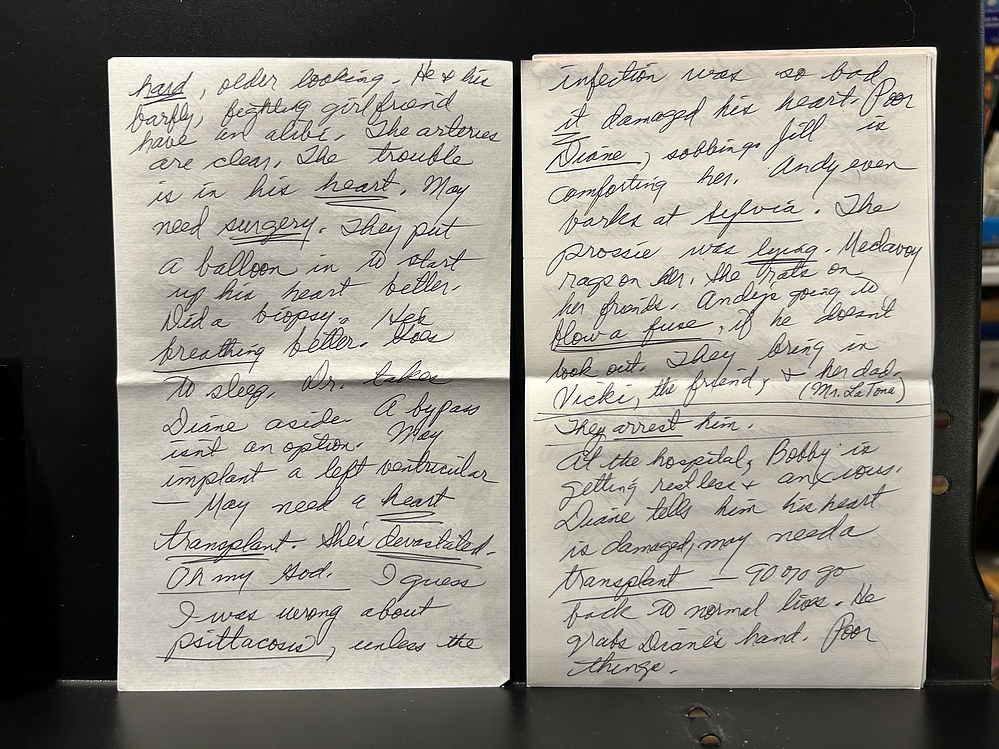 hard, older looking. He & his
barfly, fighting girlfriend
have an alibi. The arteries
are clear. The trouble
is in his heart. May
need surgery. They put
a balloon in to start
up his heart better.
Did a biopsy. He's
breathing better. Goes
to sleep. Dr. takes
Diane aside. A bypass
isn't an option. May
implant a left ventricular
— May need a heart
transplant. She's devastated.
Oh my God. I guess
I was wrong about
psittacosis, unless the
infection was so bad
it damaged his heart. Poor
Diane, sobbing. Jill is
comforting her. Andy even
barks at Sylvia. The
prossie was lying. Medavoy
rags on her. She rats on
her friends. Andy's going to
blow a fuse, if he doesn't
look out. They bring in
Vicki, the friend, & her dad.
(Mr. LaTona)
They arrest him.
At the hospital, Bobby is
getting restless & anxious.
Diane tells him his heart
is damaged, may need a
transplant — 90% go
back to normal lives. He
grabs Diane's hand. Poor
things.